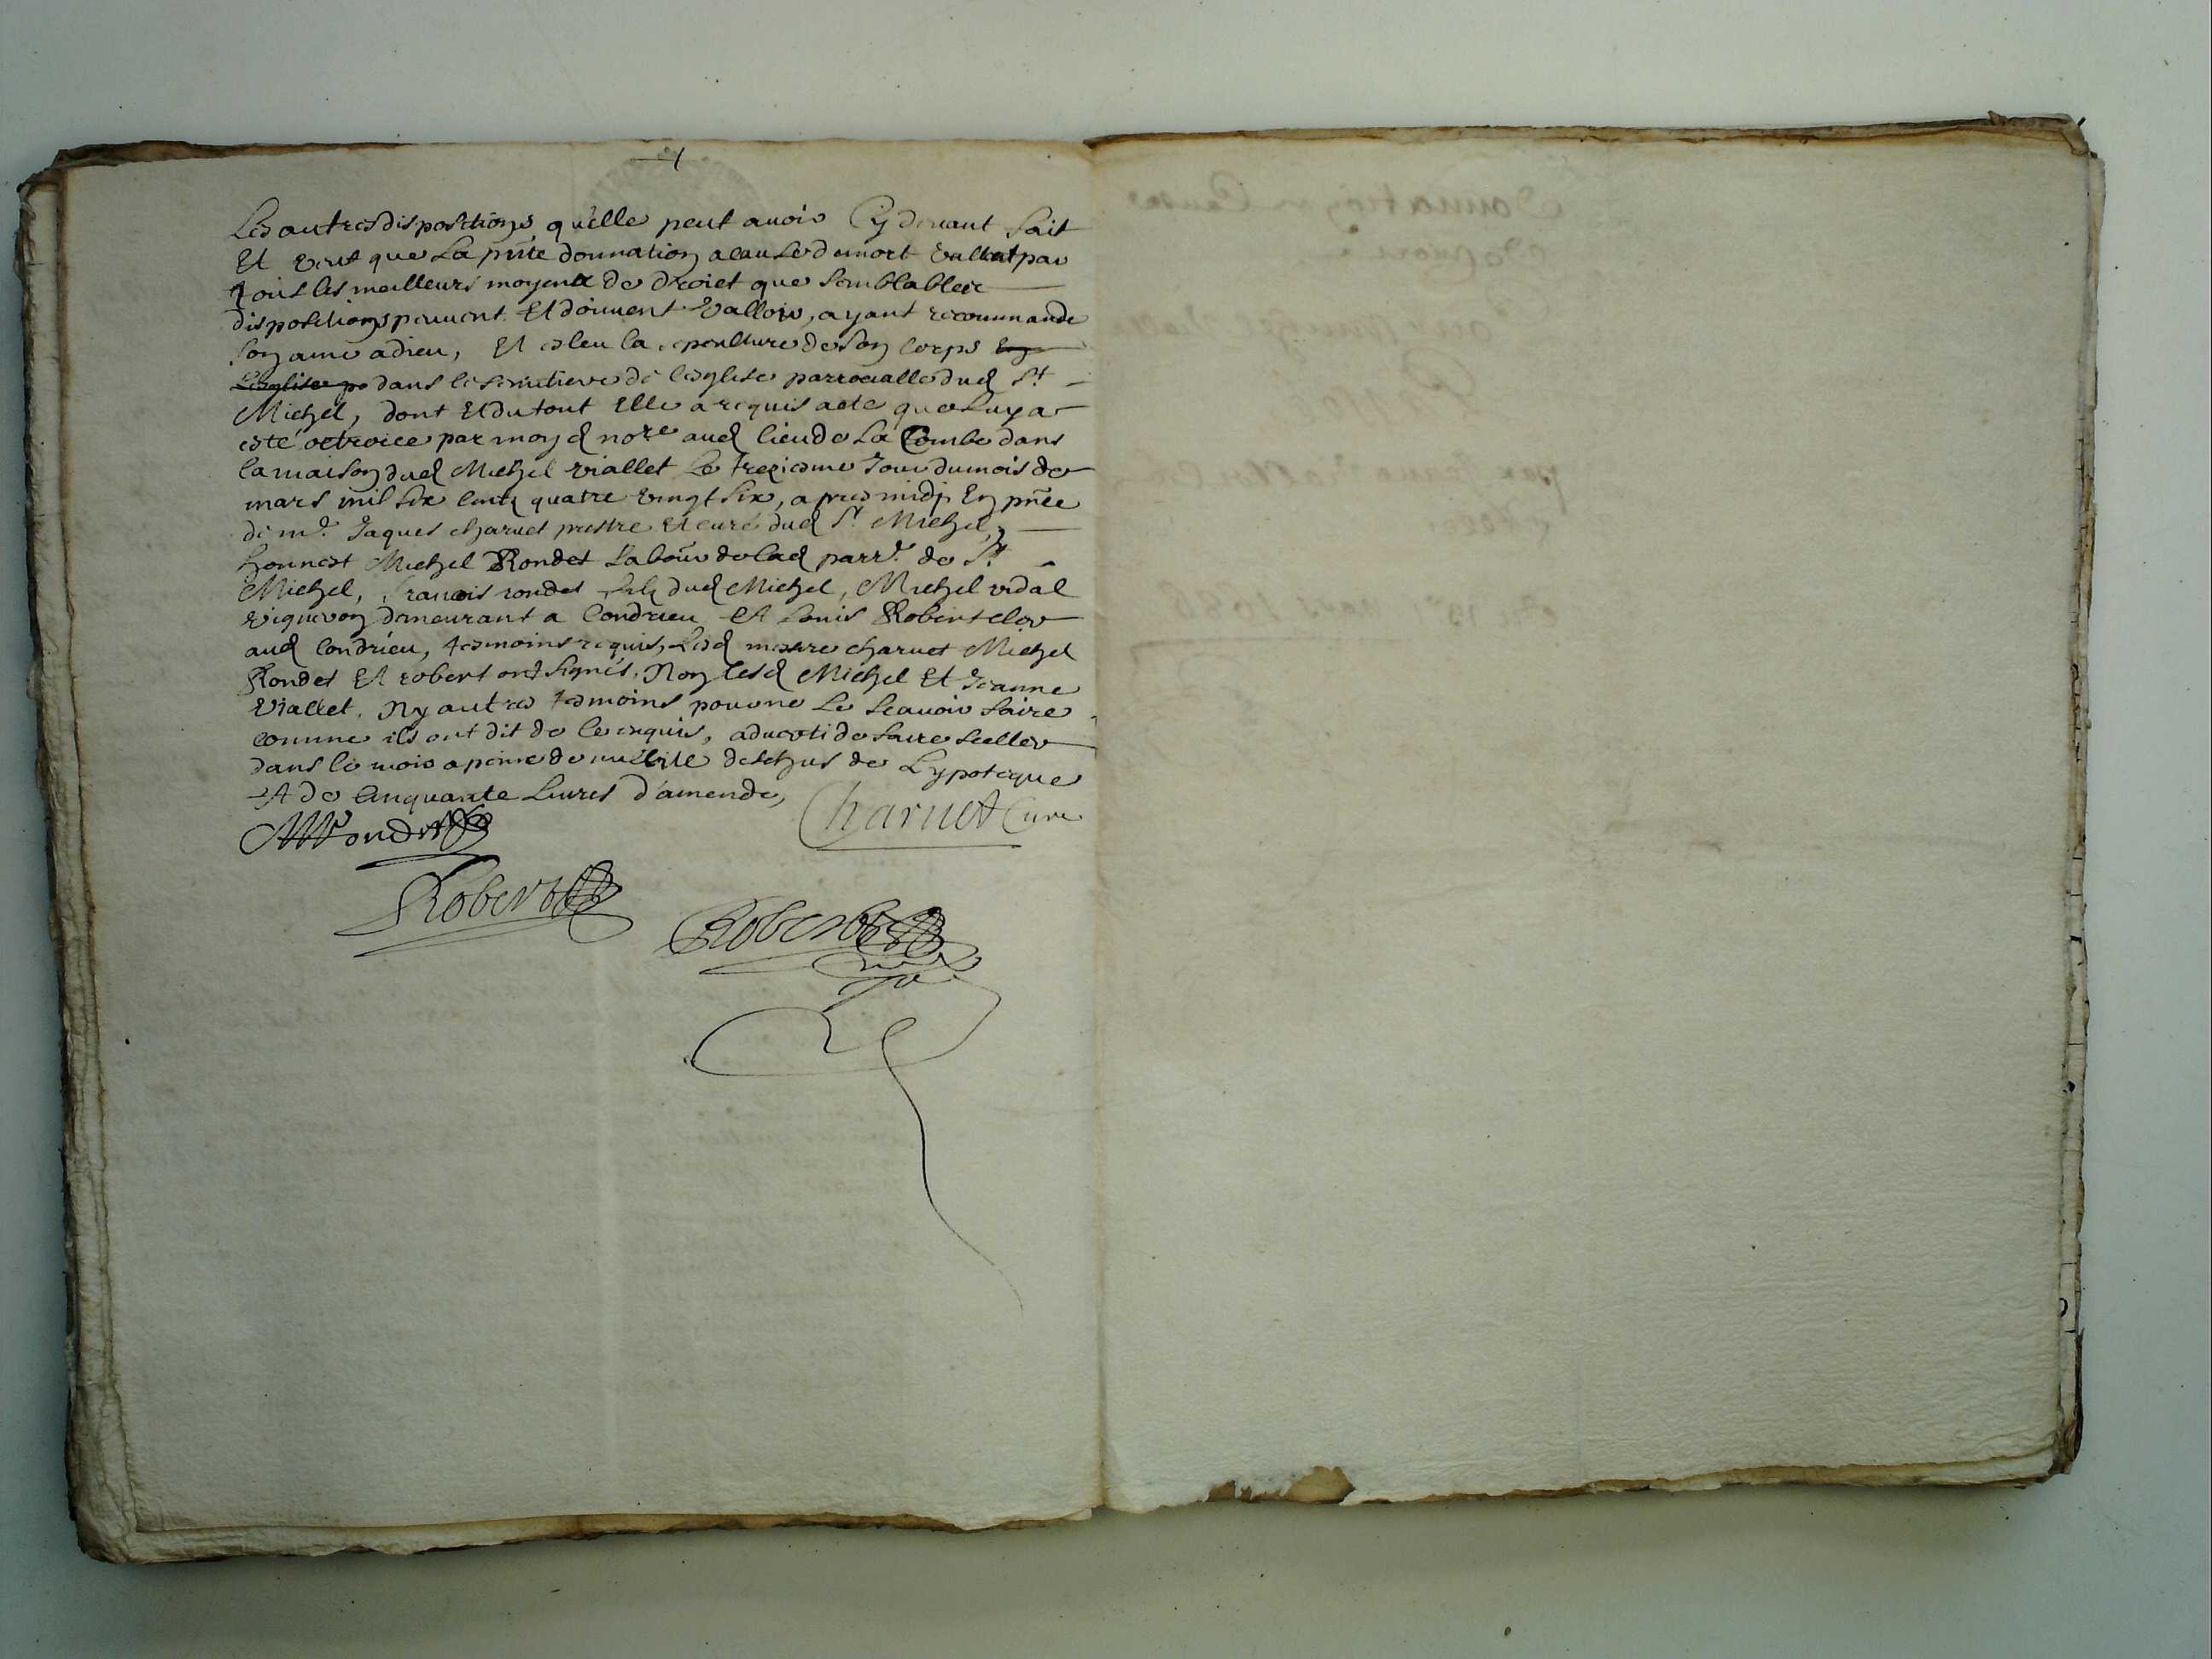 Les autres dispositions quelle peut avoir Cy devant fait
Et veut que La pnte donnation a cause de mort vaille par
tous les meilleurs moyens de droict que semblables
dispositions peuvent Et doivent valloir, ayant recommande
son ame a dieu, Et esleu la sepulture de son corps
dans le cimetiere de leglise parrocialle dud St
Michel, dont Et du tout Elle a requis acte que luy a
esté octroiee par moy d nore aud lieu de La Combe dans
la maison dud Michel viallet Le treziesme Jour du mois de
mars mil six cents quatre vingt six, apres midy En pnce
de mre Jaques charvet prestre Et curé dud St Michel,
honnest Michel Rondet Labour de lad parre de St
Michel, francois rondet fils dud Michel, Michel vidal
vigneron demeurant a Condrieu Et Louis Robert clerc
aud Condrieu, tesmoins requis, Lesd messre charvet Michel
Rondet Et robert ont signés, Non lesd Michel Et Jeanne
Viallet, Ny autres tesmoins pour ne Le scavoir faire
comme ils ont dit de ce enquis, adverti de faire sceller
dans le mois a peine de nullité deschus de Lypoteque
Et de Cinquante Livres d'amende,
MRondet
Charvet Cure
Robert
Robert